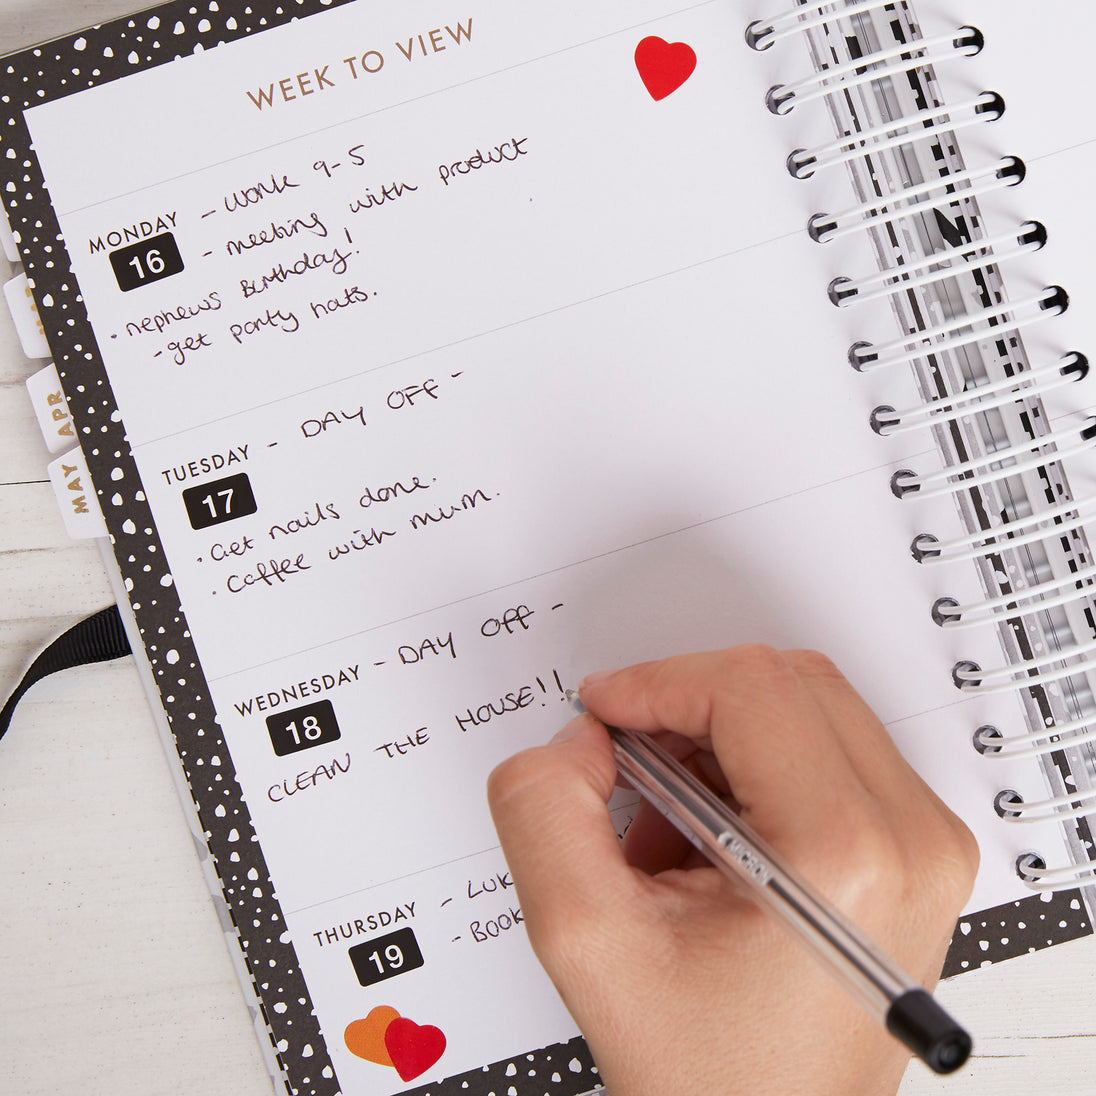 WEEK TO VIEW
- Work 9-5
MONDAY
16
- meeting with product
• nephews Birthday!
- get party hats.
TUESDAY - DAY OFF -
17
• Get nails done.
• Coffee with mum.
WEDNESDAY - DAY Off -
18
CLEAN THE HOUSE!!
THURSDAY
- LUK
19
- BOOK
APR
MAY
MICRON